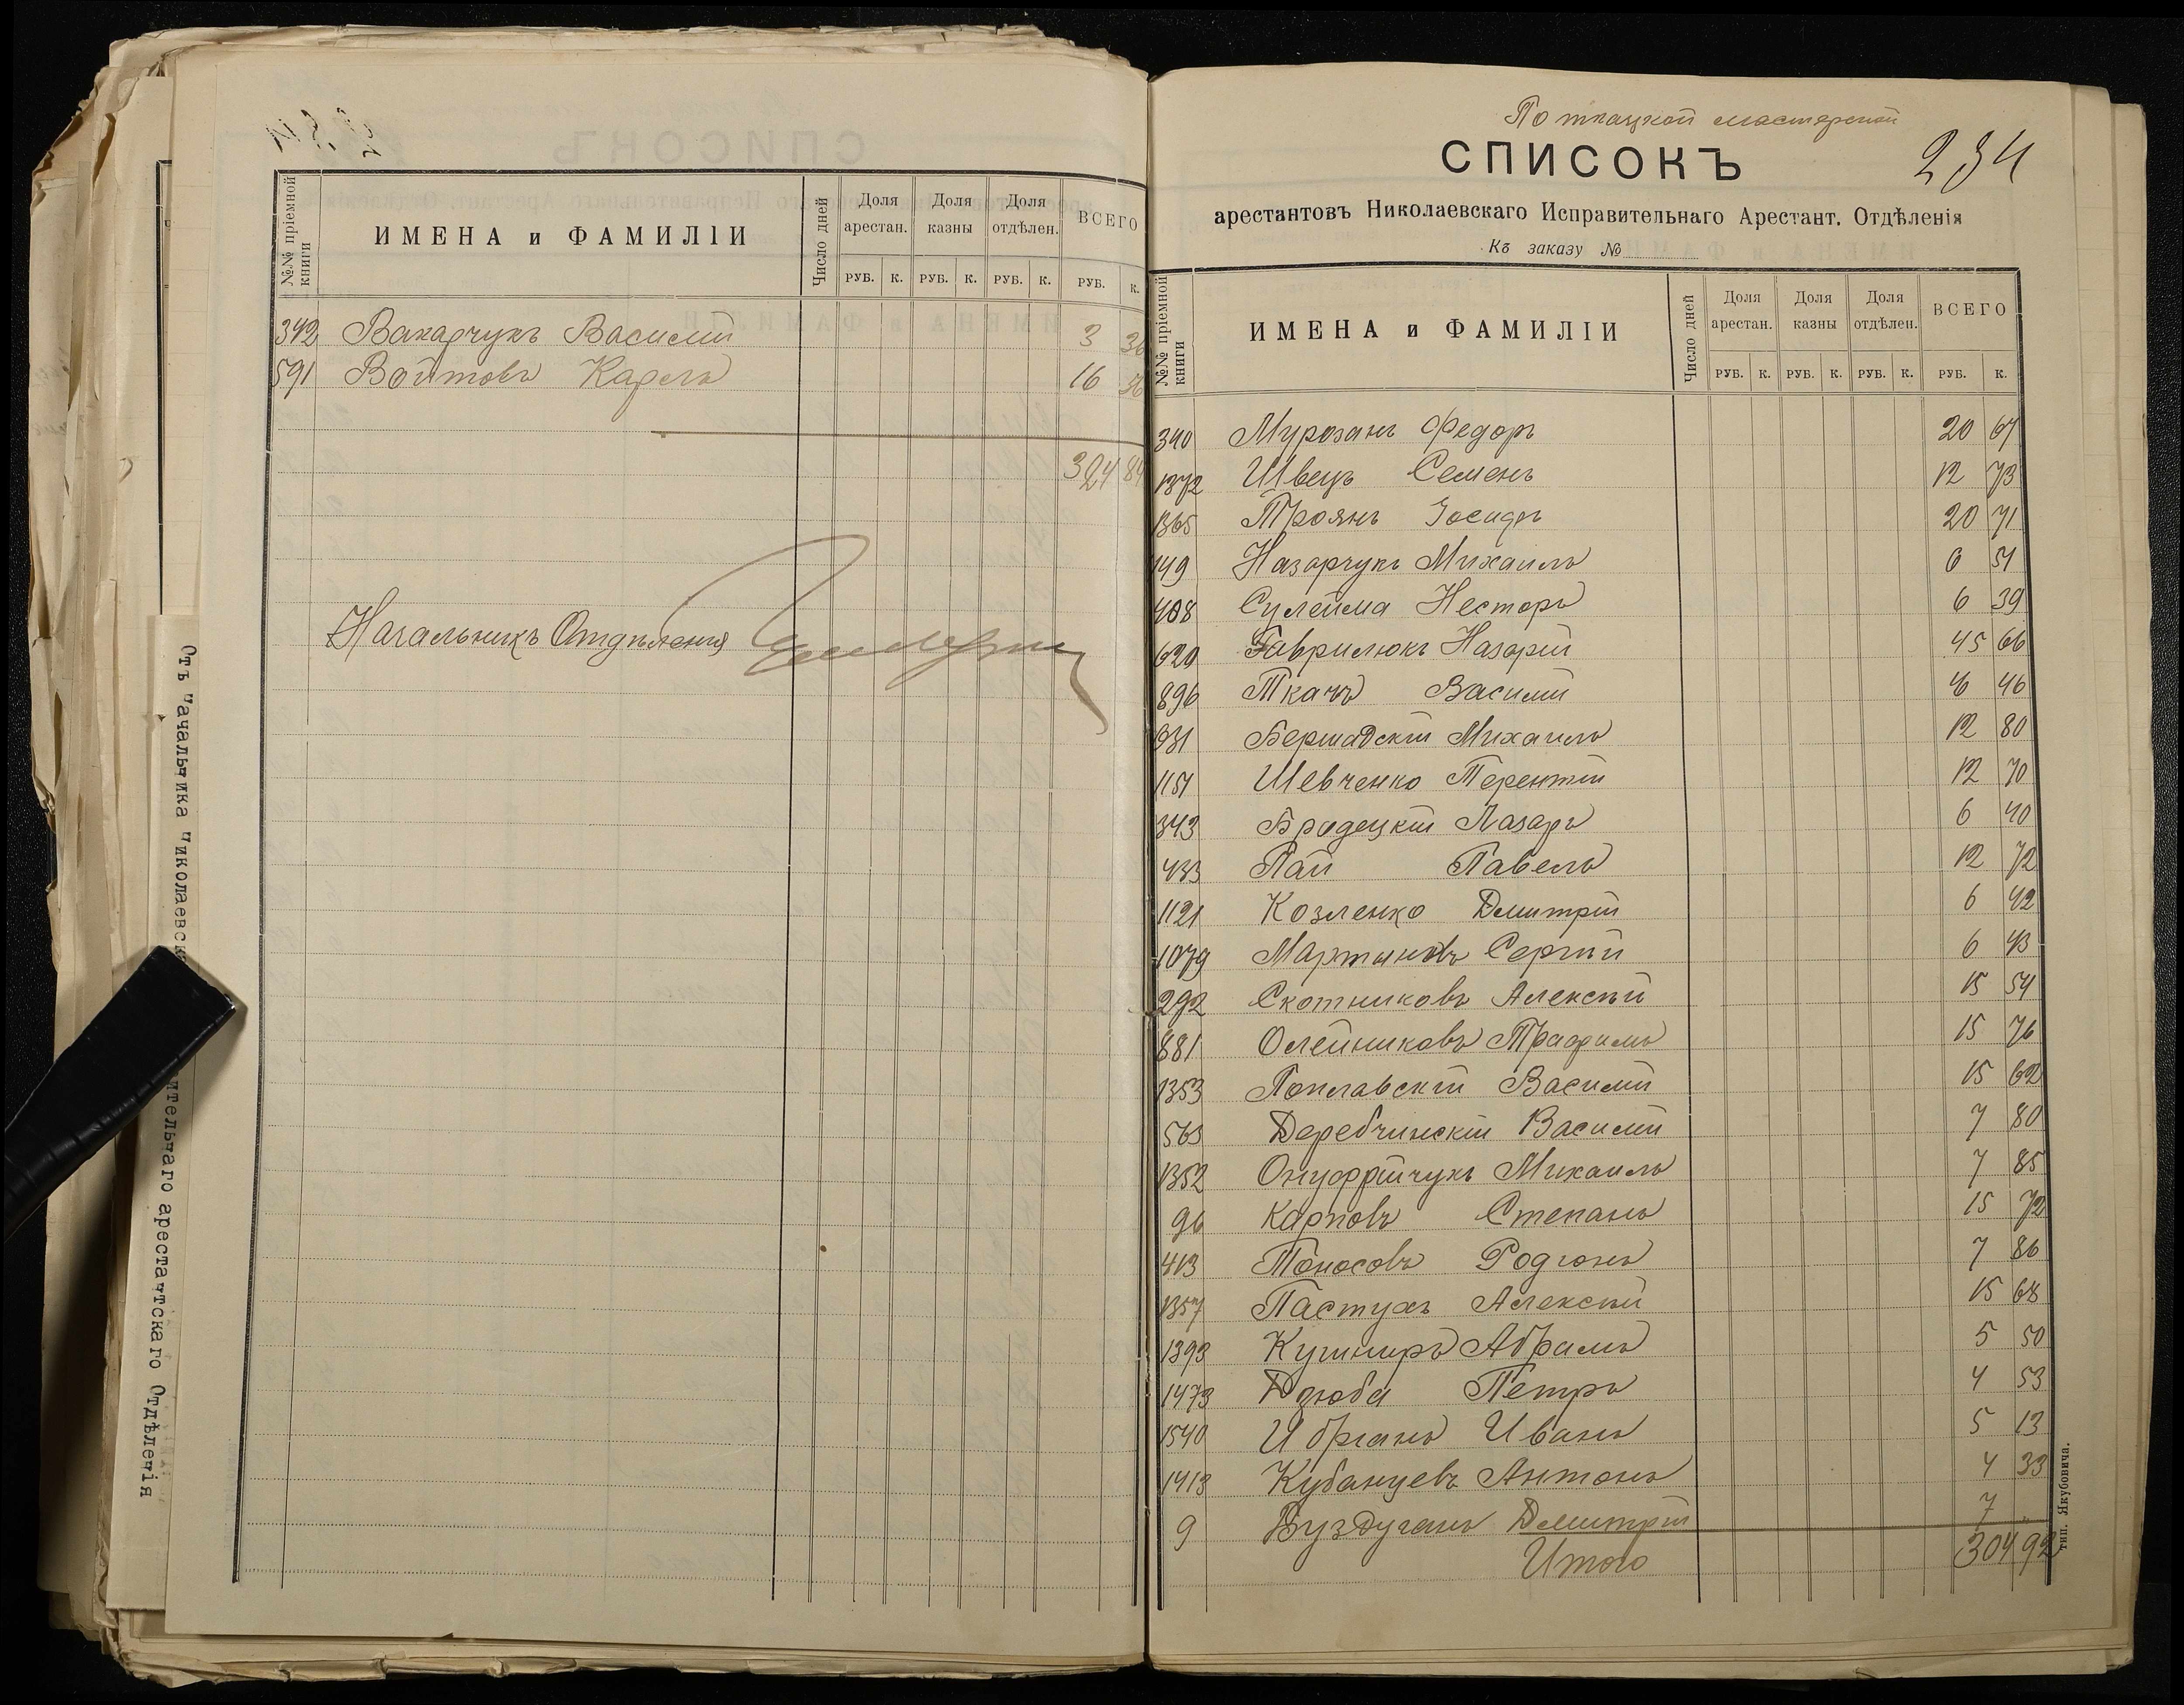 №№ пріемной книги
ИМЕНА и ФАМИЛІИ
Число дней
Доля арестан.
Доля казны
Доля отдѣлен.
ВСЕГО
РУБ. К. РУБ. К. РУБ. К. РУБ. К.
342 Вакарчукъ Василій 3 36
591 Войтовъ Карлъ 16 56
324 84
Начальникъ Отдѣленія
Отъ Начальника Николаевск
ительнаго арестантскаго Отдѣленія
По ткацкой мастерской
СПИСОКЪ
234
арестантовъ Николаевскаго Исправительнаго Арестант. Отдѣленія
Къ заказу №
№№ пріемной книги
ИМЕНА и ФАМИЛІИ
Число дней
Доля арестан.
Доля казны
Доля отдѣлен.
ВСЕГО
РУБ. К. РУБ. К. РУБ. К. РУБ. К.
340 Мурозанъ Федоръ 20 67
1372 Швецъ Семенъ 12 73
1365 Троянъ Іосифъ 20 71
149 Назарчукъ Михаилъ 6 51
408 Сулейма Несторъ 6 39
620 Гаврилюкъ Назарій 45 66
896 Ткачъ Василій 6 46
931 Бершадскій Михаилъ 12 80
1151 Шевченко Терентій 12 70
343 Бродецкій Лазарь 6 40
433 Пай Павелъ 12 72
1121 Козленко Дмитрій 6 42
1079 Мартыновъ Сергѣй 6 43
292 Скотниковъ Алексѣй 15 54
881 Олейниковъ Трафимъ 15 76
1353 Поплавскій Василій 15 62
563 Деребчинскій Василій 7 80
1352 Онуфрійчукъ Михаилъ 7 85
96 Карповъ Степанъ 15 72
413 Поносовъ Родіонъ 7 86
1357 Пастухъ Алексѣй 15 68
1393 Кушниръ Абрамъ 5 50
1473 Дзюба Петръ 4 53
1540 Иванъ 5 13
1413 Кубанцевъ Антонъ 4 33
9 Буздуганъ Дмитрій 7 „
Итого 304 92
тип. Якубовича.